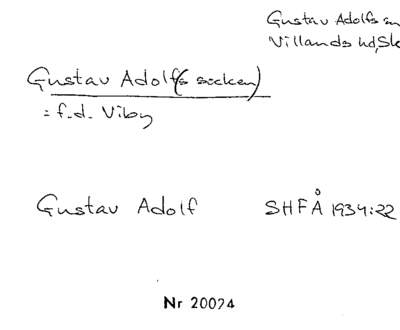 Gustav Adolfs sn
Villands hd, Sk
Gustav Adolf(s socken)
= f.d. Viby
Gustav Adolf SHFÅ 1934:22
Nr 20024